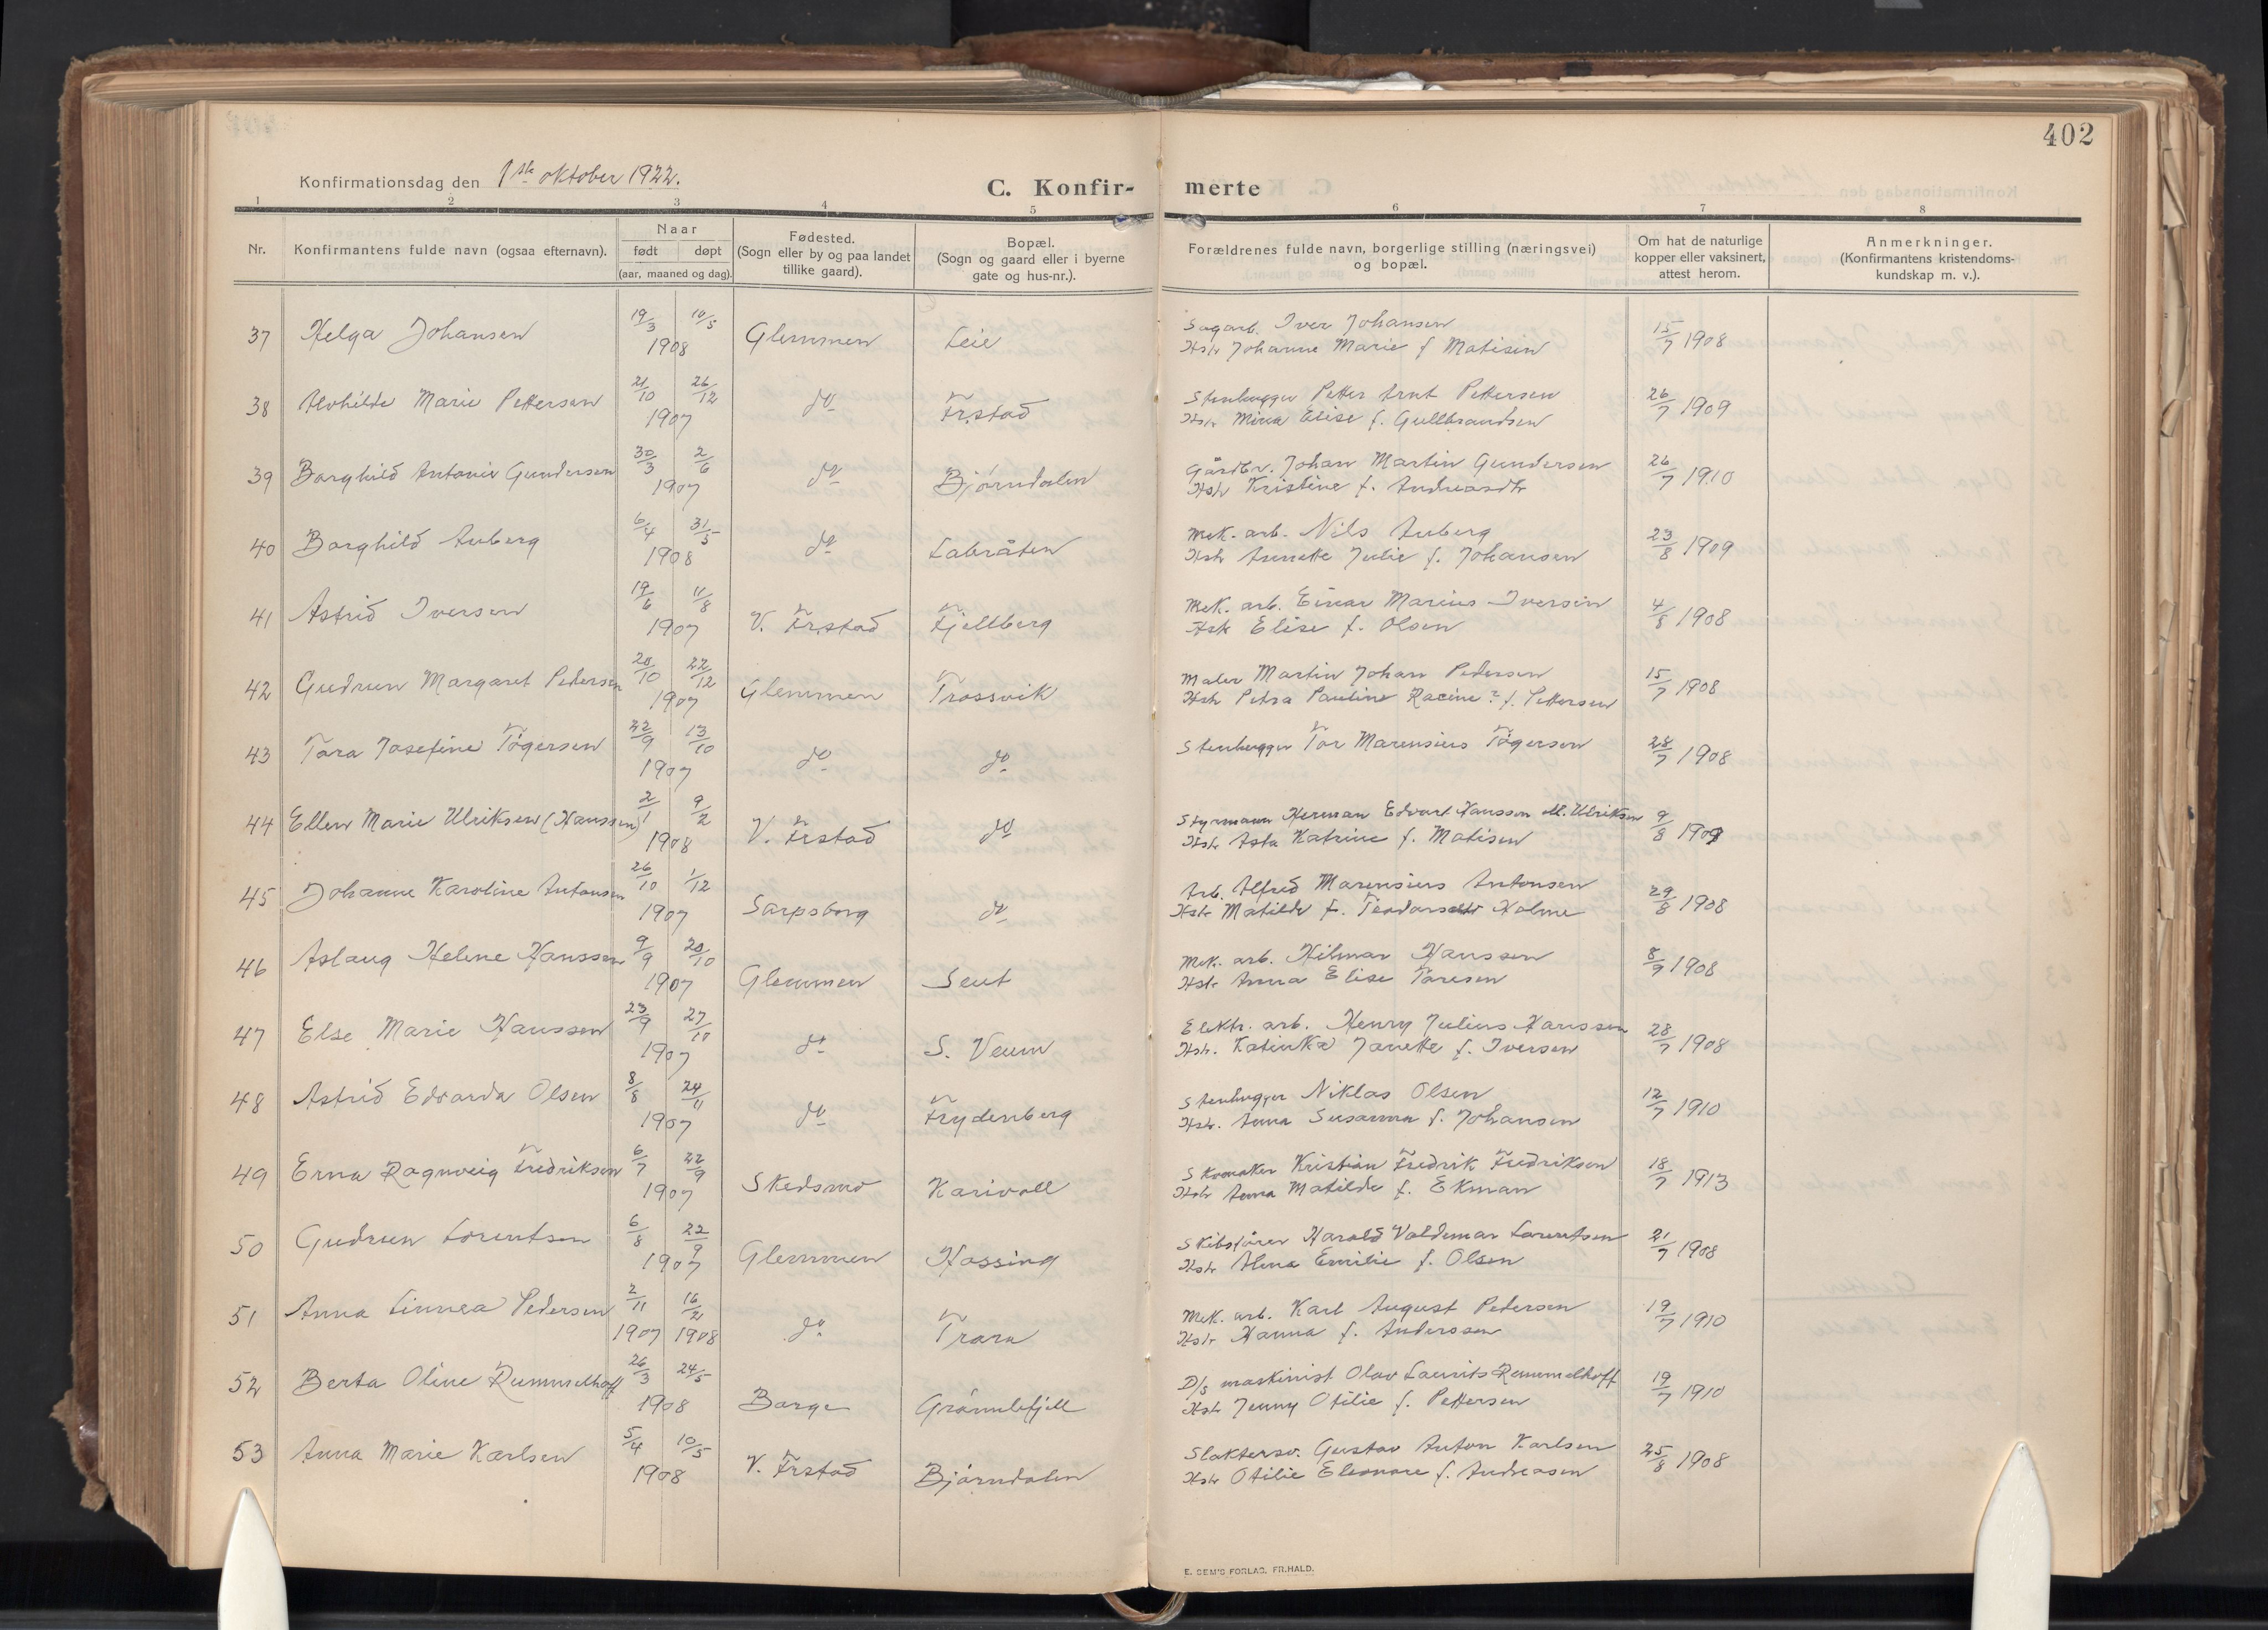 402
Konfirmationsdag den 1ste oktober 1922.
C. Konfir- merte
1 2 3 4 5 6 7 8
Nr. Konfirmantens fulde navn (ogsaa efternavn). Naar født døpt (aar, maaned og dag). Fødested. (Sogn eller by og paa landet tillike gaard). Bopæl. (Sogn og gaard eller i byerne gate og hus-nr.). Forældrenes fulde navn, borgerlige stilling (næringsvei) og bopæl. Om hat de naturlige kopper eller vaksinert, attest herom. Anmerkninger. (Konfirmantens kristendoms- kundskap m. v.).
37 Helga Johansen 19/3 10/5 1908 Glemmen Leie Sagarb. Iver Johansen
Hstr Johanne Marie f Matisen 15/7 1908
38 Alvhilde Marie Pettersen 21/10 26/12 1907 do Fr.stad Stenhugger Petter Arnt Pettersen
Hstr Mina Elise f. Gullbrandsen 26/7 1909
39 Borghild Antonie Gundersen 30/3 2/6 1907 do Bjørndalen Gårdbr. Johan Martin Gundersen
Hstr Kristine f. Andreasdtr 26/7 1910
40 Borghild Auberg 6/4 31/5 1908 do Labråten Mek. arb. Nils Auberg
Hstr Annette Julie f. Johansen 23/8 1909
41 Astrid Iversen 19/6 11/8 1907 V. Fr.stad Fjellberg Mek. arb. Einar Marius Iversen
Hstr Elise f. Olsen 4/8 1908
42 Gudrun Margaret Pedersen 20/10 22/12 1907 Glemmen Trossvik Maler Martin Johan Pedersen
Hstr Petra Pauline Racine? f. Pettersen 15/7 1908
43 Tora Josefine Tögersen 22/9 13/10 1907 do do Stenhugger Tor Marensius Tögersen 28/7 1908
44 Ellen Marie Ulriksen (Hanssen) 2/1 9/2 1908 V. Frstad do Styrmann Herman Edvart Hanssen ell. Ulriksen
Hstr Asta Katrine f. Matisen 9/8 1909
45 Johanne Karoline Antonsen 26/10 1/12 1907 Sarpsborg do Arb. Alfred Marensius Antonsen
Hstr Matilde f. Holme 29/8 1908
46 Aslaug Helene Hanssen 9/9 20/10 1907 Glemmen Seut Mek. arb. Hilmar Hanssen
Hstr Anna Elise Toresen 8/9 1908
47 Else Marie Hanssen 23/9 27/10 1907 do S. Veum Elektr. arb. Henry Julius Hanssen
Hstr. Katinka Janette f. Iversen 28/7 1908
48 Astrid Edvarda Olsen 8/8 24/11 1907 do Frydenberg Stenhugger Niklas Olsen
Hstr. Anna Susanna f. Johansen 12/7 1910
49 Erna Ragnveig Fredriksen 6/7 22/9 1907 Skedsmo Karivoll Skomaker Kristian Fredrik Fredriksen
Hstr Anna Matilde f. Ekman 18/7 1913
50 Gudrun Lorentsen 6/8 22/9 1907 Glemmen Hassing Skibsfører Harald Valdemar Lorentsen
Hstr Alma Emilie f. Olsen 21/7 1908
51 Anna Linnea Pedersen 2/11 1907 16/2 1908 do Trara Mek. arb. Karl August Pedersen
Hstr Hanna f. Anderssen 19/7 1910
52 Berta Oline Rummelhoff 26/3 24/5 1908 Borge Grönnlifjell D/s maskinist Olav Laurits Rummelhoff
Hstr Jenny Otilie f. Pettersen 19/7 1910
53 Anna Marie Karlsen 5/4 10/5 1908 V. Frstad Bjørndalen Slaktersv. Gustav Anton Karlsen
Hstr Otilie Eleonore f. Andreasen 25/8 1908
E. SEM'S FORLAG. FR.HALD.